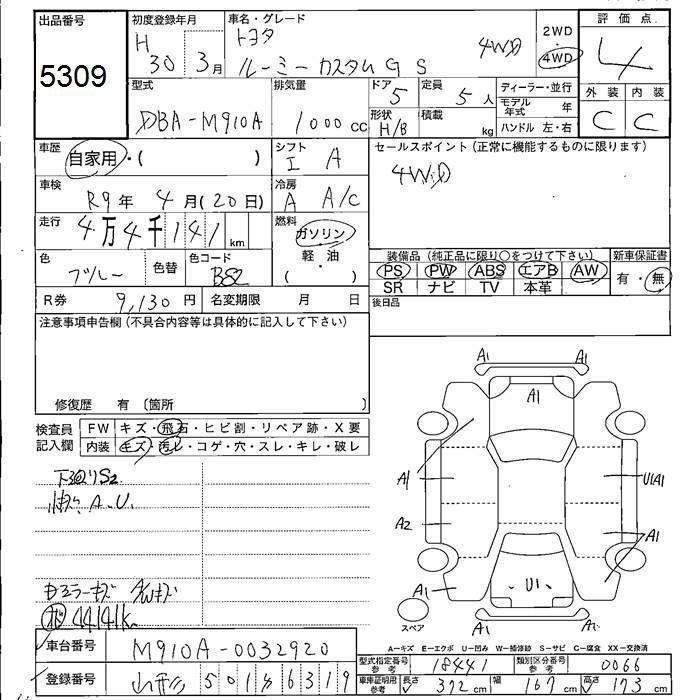 出品番号
5309
初度登録年月
H
30年 3月
車名・グレード
トヨタ
ルーミー カスタムG S
4WD
2WD
4WD
評価点
4
外装 内装
C C
型式
DBA-M910A
排気量
1000cc
ドア
5
定員
5人
形状
H/B
積載
kg
ディーラー・並行
モデル年式 年
ハンドル 左・右
車歴
自家用・( )
シフト
I A
セールスポイント(正常に機能するものに限ります)
4WD
車検
R9年 4月(20日)
冷房
A A/C
走行
4万4千141km
燃料
ガソリン
・
軽・油
( )
色
ブルー
色替
色コード
B82
装備品(純正品に限り○をつけて下さい)
PS PW ABS エアB AW
SR ナビ TV 本革
新車保証書
有・無
R券 9,130円
名変期限 月 日
後日品
注意事項申告欄(不具合内容等は具体的に記入して下さい)
修復歴 有〔箇所 〕
検査員記入欄
FW キズ・飛石・ヒビ割・リペア跡・X要
内装 キズ・汚レ・コゲ・穴・スレ・キレ・破レ
下廻りS2
A.U.
ミラーキズ AWキズ
44141k
A1 A1
A1
A1
U1A1
A2
A1
A1
U1
A1 A1
スペア
A-キズ E-エクボ U-凹み W-補修跡 S-サビ C-腐食 XX-交換済
車台番号
M910A-0032920
型式指定番号 参考
18441
類別区分番号 参考
0066
登録番号
501 6319
車庫証明用 参考
長さ 372cm
幅 167cm
高さ 173cm